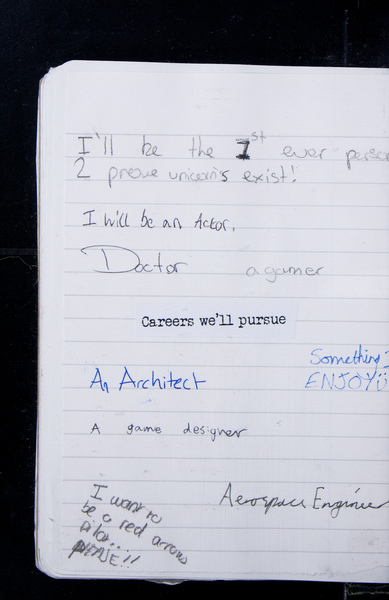 I'll be the 1st ever person
2 prove unicorns exist!
I will be an Actor.
Doctor
a gamer
Careers we'll pursue
Something I
ENJOY
An Architect
A game designer
Aerospace Engineer
I want to
be a red arrows
pilot....!!
PLEASE!!